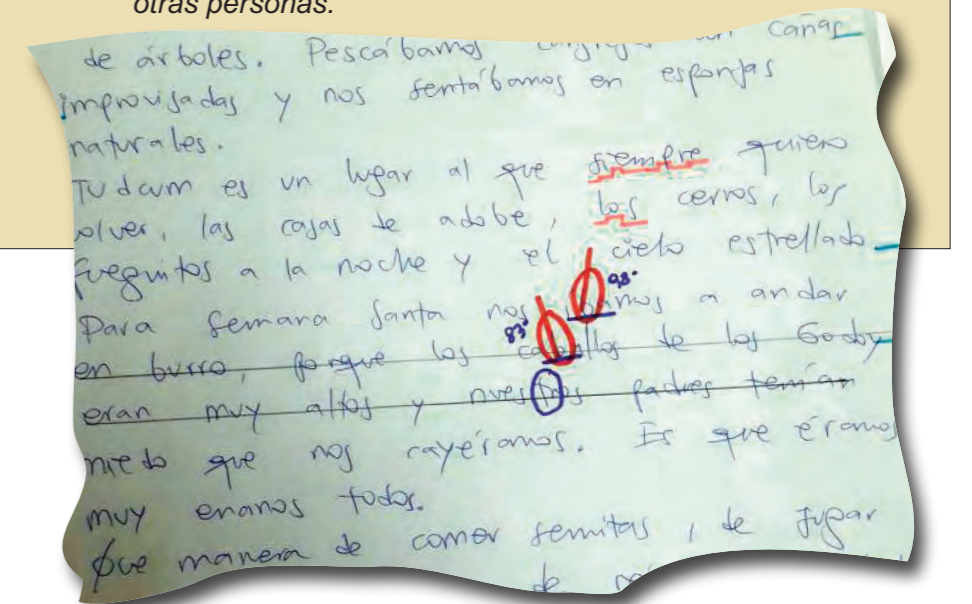 otras personas.
de árboles. Pescábamos con cañas
improvisadas y nos sentábamos en esponjas
naturales.
Tudcum es un lugar al que siempre quiero
volver, las casas de adobe, los cerros, los
fueguitos a la noche y el cielo estrellado
Para Semana Santa nos íbamos a andar
98°
83°
en burro, porque los caballos de los Godoy
eran muy altos y nuestros padres tenían
miedo que nos cayéramos. Es que éramos
muy enanos todos.
Que manera de comer semitas, de jugar
de